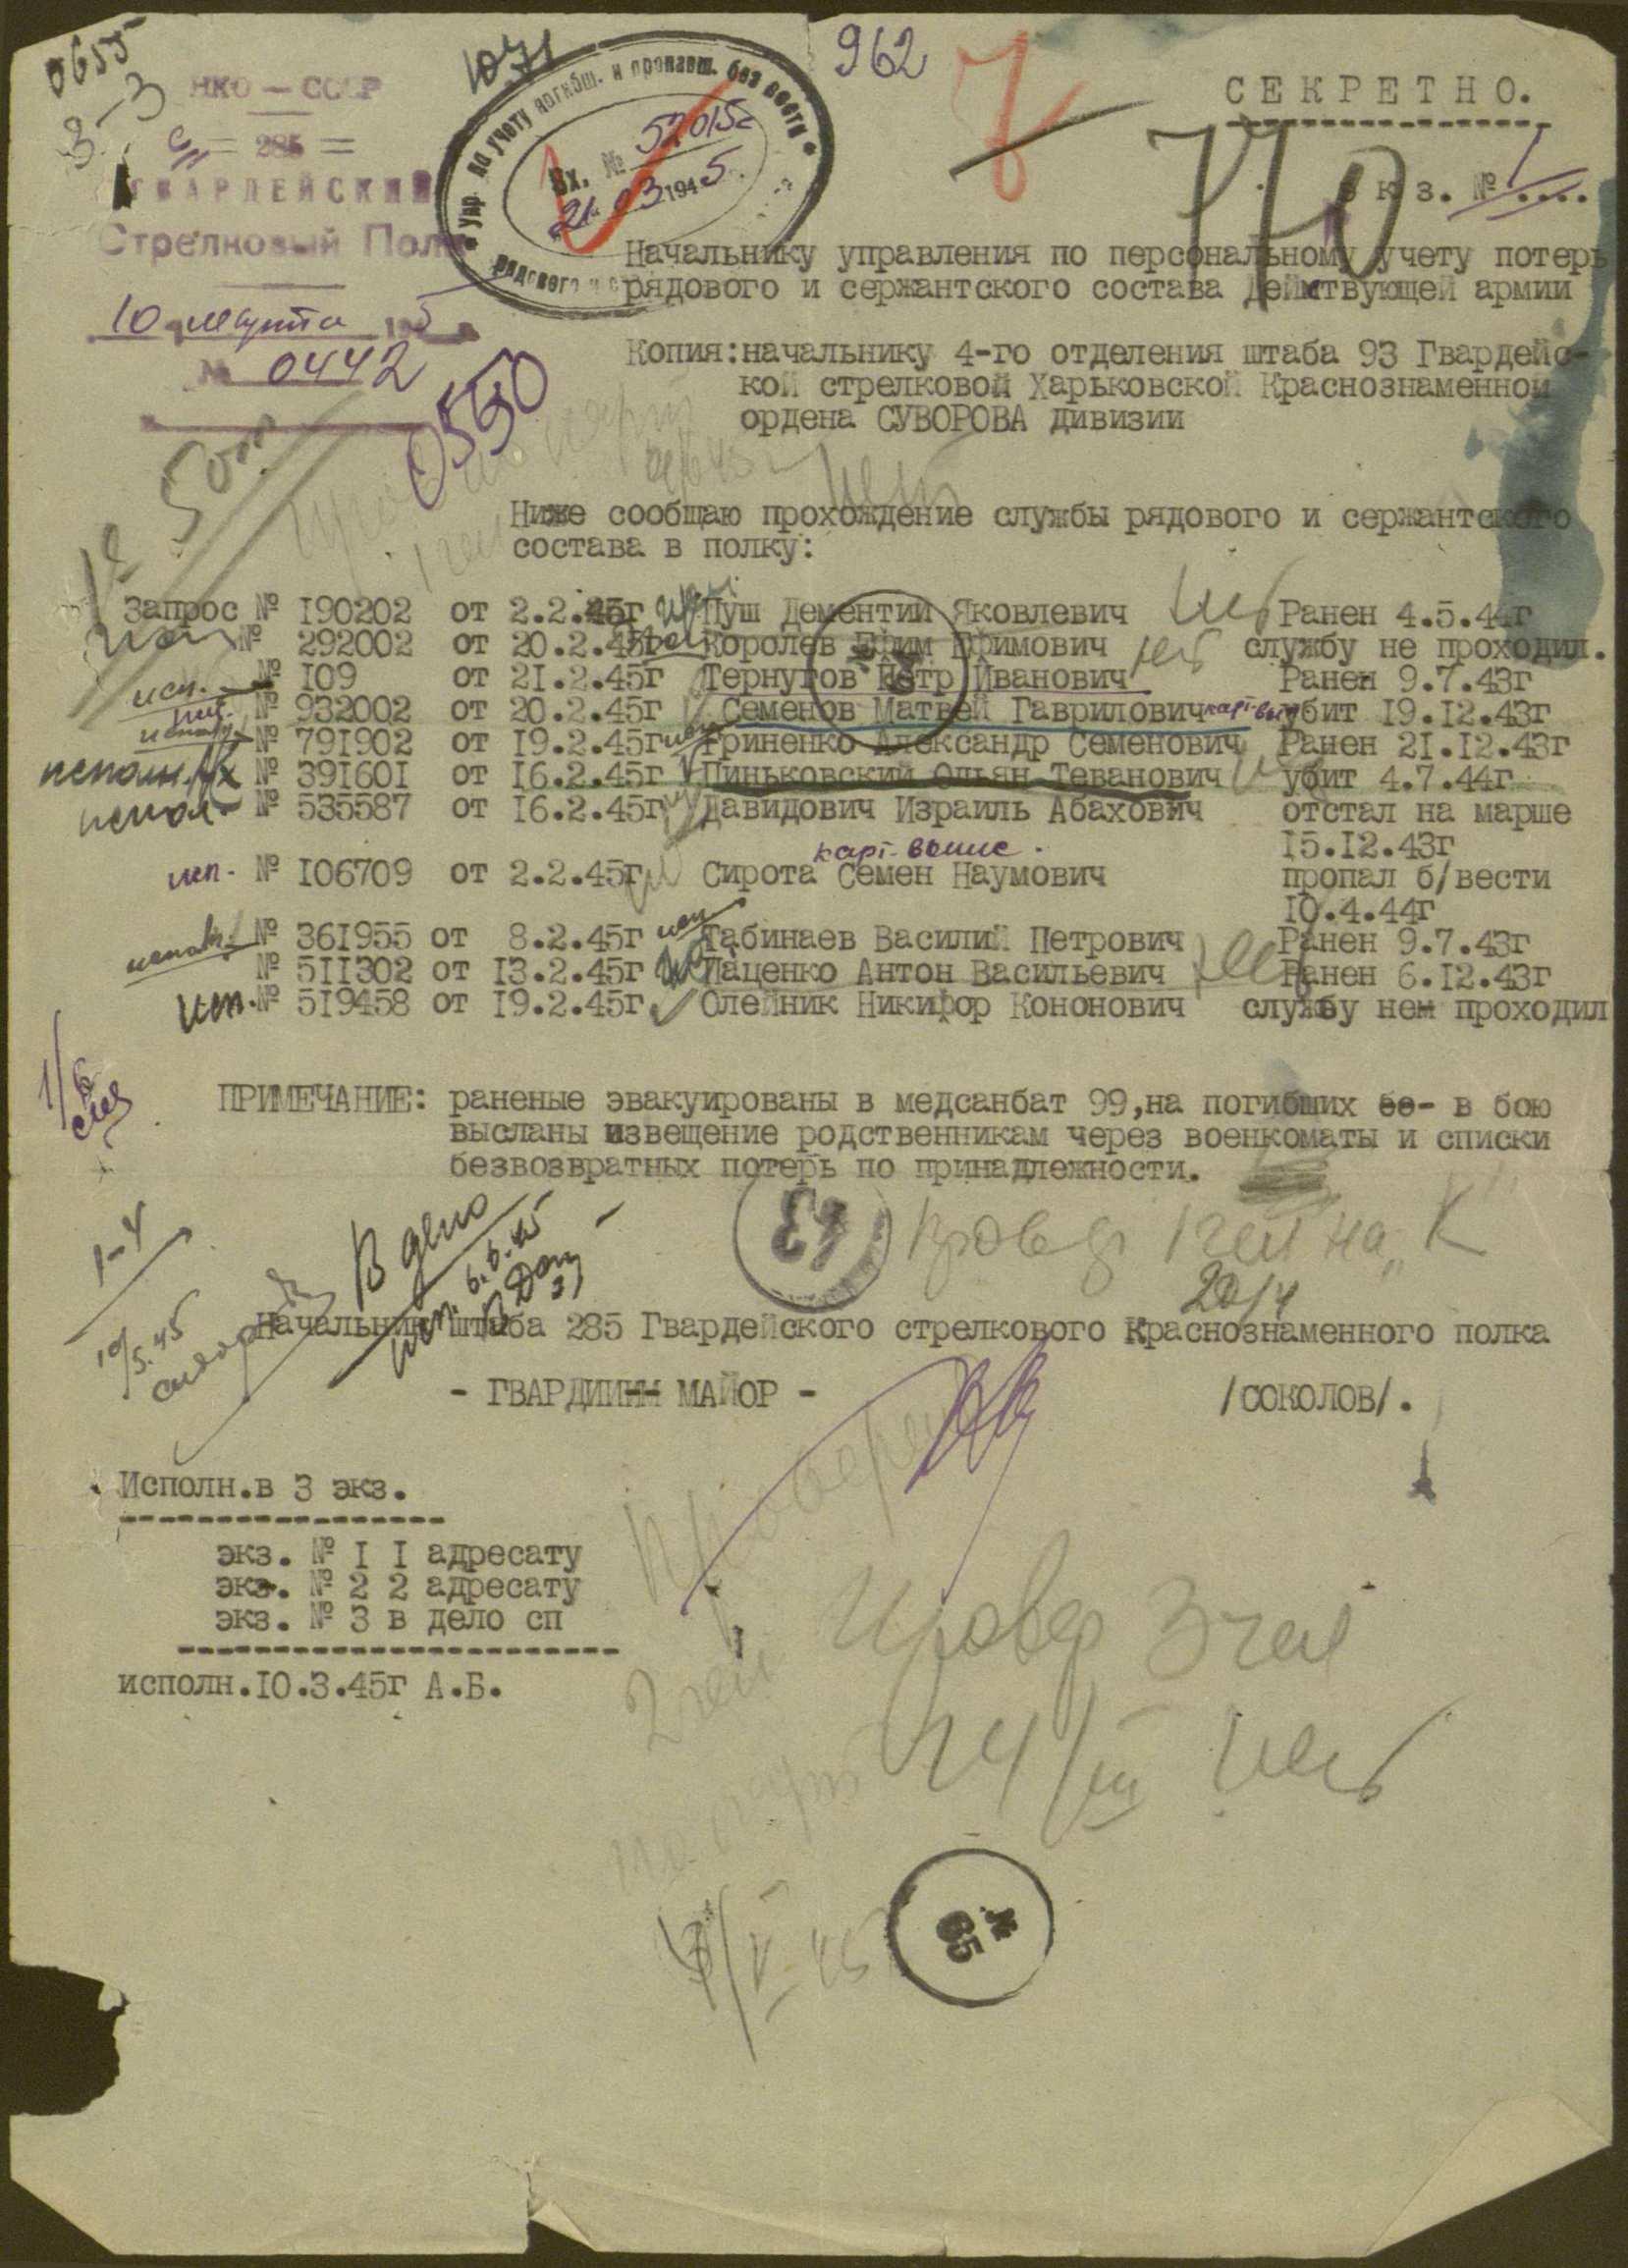 0655
3-3
1071
962
СЕКРЕТНО.
НКО — СССР
= 285 =
ГВАРДЕЙСКИЙ
Стрелковый Полк
10 марта 5
№ 0442
0550
Упр. по учету погибш. и пропавш. без вести
Вх. № 52015с
21 03 1945
рядового и с
экз. № 1
Начальнику управления по персональному учету потерь
рядового и сержантского состава Действующей армии
Копия:начальнику 4-го отделения штаба 93 Гвардейс-
кой стрелковой Харьковской Краснознаменной
ордена СУВОРОВА дивизии
Ниже сообщаю прохождение службы рядового и сержантского
состава в полку:
Запрос № I90202 от 2.2.45г Пуш Дементий Яковлевич Ранен 4.5.44г
№ 292002 от 20.2.45г Королев Ефим Ефимович службу не проходил.
исп. № I09 от 2I.2.45г Тернугов Петр Иванович Ранен 9.7.43г
№ 932002 от 20.2.45г Семенов Матвей Гаврилович убит I9.I2.43г
№ 79I902 от I9.2.45г Гриненко Александр Семенович Ранен 2I.I2.43г
исполн. № 39I60I от I6.2.45г Пиньковский Ольян Теванович убит 4.7.44г
испол № 535587 от I6.2.45г Давидович Израиль Абахович отстал на марше
I5.I2.43г
карт-выше.
исп. № I06709 от 2.2.45г Сирота Семен Наумович пропал б/вести
I0.4.44г
№ 36I955 от 8.2.45г Табинаев Василий Петрович Ранен 9.7.43г
№ 5II302 от I3.2.45г Паценко Антон Васильевич Ранен 6.I2.43г
исп. № 5I9458 от I9.2.45г Олейник Никифор Кононович службу нем проходил
ПРИМЕЧАНИЕ: раненые эвакуированы в медсанбат 99,на погибших бо- в бою
высланы извещение родственникам через военкоматы и списки
безвозвратных потерь по принадлежности.
В дело
6.6.45
Провер 1 чел на "К"
20/4
1-4
Начальник штаба 285 Гвардейского стрелкового Краснознаменного полка
- ГВАРДИИ МАЙОР - /СОКОЛОВ/.
Исполн.в 3 экз.
экз. № I I адресату
экз. № 2 2 адресату
экз. № 3 в дело сп
исполн.I0.3.45г А.Б.
Провер 3 чел
2 чел
24/III
№
65